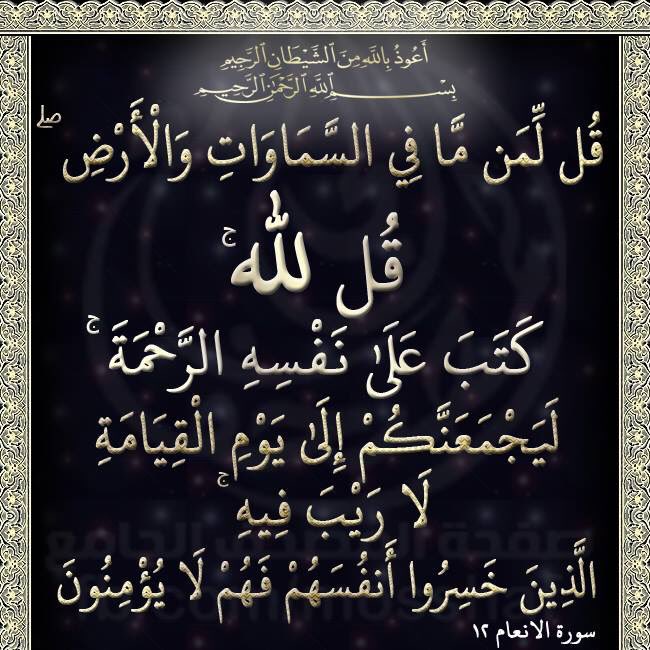 أَعُوذُ بِاللَّهِ مِنَ الشَّيْطَانِ الرَّجِيمِ
بِسْمِ اللَّهِ الرَّحْمَٰنِ الرَّحِيمِ
قُل لِّمَن مَّا فِي السَّمَاوَاتِ وَالْأَرْضِ ۖ
قُل لِلَّهِ ۚ
كَتَبَ عَلَىٰ نَفْسِهِ الرَّحْمَةَ ۚ
لَيَجْمَعَنَّكُمْ إِلَىٰ يَوْمِ الْقِيَامَةِ
لَا رَيْبَ فِيهِ ۚ
الَّذِينَ خَسِرُوا أَنفُسَهُمْ فَهُمْ لَا يُؤْمِنُونَ
سورة الانعام ١٢